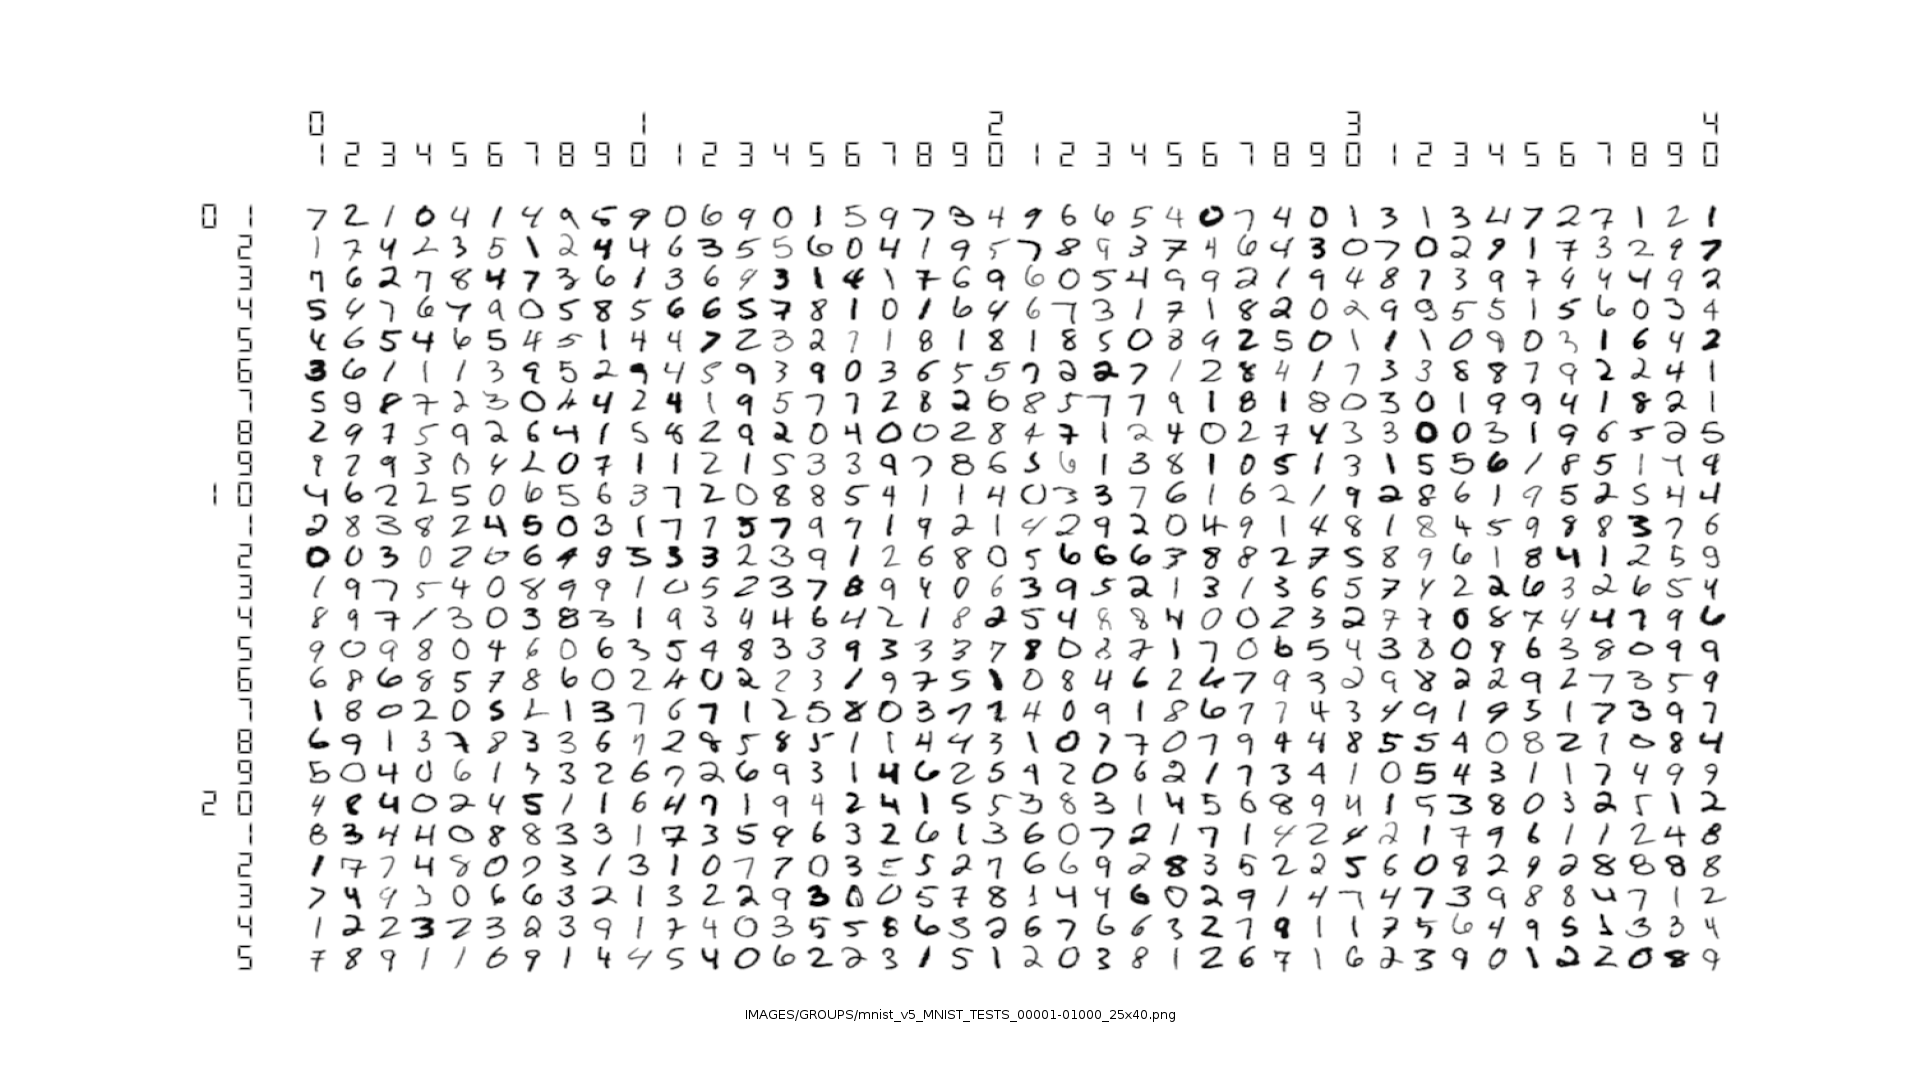 0 1 2 3 4
1 2 3 4 5 6 7 8 9 0 1 2 3 4 5 6 7 8 9 0 1 2 3 4 5 6 7 8 9 0 1 2 3 4 5 6 7 8 9 0
0 1 7 2 1 0 4 1 4 9 5 9 0 6 9 0 1 5 9 7 3 4 9 6 6 5 4 0 7 4 0 1 3 1 3 4 7 2 7 1 2 1
2 1 7 4 2 3 5 1 2 4 4 6 3 5 5 6 0 4 1 9 5 7 8 9 3 7 4 6 4 3 0 7 0 2 9 1 7 3 2 9 7
3 7 6 2 7 8 4 7 3 6 1 3 6 9 3 1 4 1 7 6 9 6 0 5 4 9 9 2 1 9 4 8 7 3 9 7 4 4 4 9 2
4 5 4 7 6 7 9 0 5 8 5 6 6 5 7 8 1 0 1 6 4 6 7 3 1 7 1 8 2 0 2 9 9 5 5 1 5 6 0 3 4
5 4 6 5 4 6 5 4 5 1 4 4 7 2 3 2 7 1 8 1 8 1 8 5 0 8 9 2 5 0 1 1 1 0 9 0 3 1 6 4 2
6 3 6 1 1 1 3 9 5 2 9 4 5 9 3 9 0 3 6 5 5 7 2 2 7 1 2 8 4 1 7 3 3 8 8 7 9 2 2 4 1
7 5 9 8 7 2 3 0 4 4 2 4 1 9 5 7 7 2 8 2 6 8 5 7 7 9 1 8 1 8 0 3 0 1 9 9 4 1 8 2 1
8 2 9 7 5 9 2 6 4 1 5 8 2 9 2 0 4 0 0 2 8 4 7 1 2 4 0 2 7 4 3 3 0 0 3 1 9 6 5 2 5
9 9 2 9 3 0 4 2 0 7 1 1 2 1 5 3 3 9 7 8 6 5 6 1 3 8 1 0 5 1 3 1 5 5 6 1 8 5 1 7 9
1 0 4 6 2 2 5 0 6 5 6 3 7 2 0 8 8 5 4 1 1 4 0 3 3 7 6 1 6 2 1 9 2 8 6 1 9 5 2 5 4 4
1 2 8 3 8 2 4 5 0 3 1 7 7 5 7 9 7 1 9 2 1 4 2 9 2 0 4 9 1 4 8 1 8 4 5 9 8 8 3 7 6
2 0 0 3 0 2 6 6 4 9 5 3 3 2 3 9 1 2 6 8 0 5 6 6 6 3 8 8 2 7 5 8 9 6 1 8 4 1 2 5 9
3 1 9 7 5 4 0 8 9 9 1 0 5 2 3 7 8 9 4 0 6 3 9 5 2 1 3 1 3 6 5 7 4 2 2 6 3 2 6 5 4
4 8 9 7 1 3 0 3 8 3 1 9 3 4 4 6 4 2 1 8 2 5 4 8 8 4 0 0 2 3 2 7 7 0 8 7 4 4 7 9 6
5 9 0 9 8 0 4 6 0 6 3 5 4 8 3 3 9 3 3 3 7 8 0 8 2 1 7 0 6 5 4 3 8 0 9 6 3 8 0 9 9
6 6 8 6 8 5 7 8 6 0 2 4 0 2 2 3 1 9 7 5 1 0 8 4 6 2 6 7 9 3 2 9 8 2 2 9 2 7 3 5 9
7 1 8 0 2 0 5 2 1 3 7 6 7 1 2 5 8 0 3 7 2 4 0 9 1 8 6 7 7 4 3 4 9 1 9 5 1 7 3 9 7
8 6 9 1 3 7 8 3 3 6 7 2 8 5 8 5 1 1 4 4 3 1 0 7 7 0 7 9 4 4 8 5 5 4 0 8 2 1 0 8 4
9 5 0 4 0 6 1 7 3 2 6 7 2 6 9 3 1 4 6 2 5 4 2 0 6 2 1 7 3 4 1 0 5 4 3 1 1 7 4 9 9
2 0 4 8 4 0 2 4 5 1 1 6 4 7 1 9 4 2 4 1 5 5 3 8 3 1 4 5 6 8 9 4 1 5 3 8 0 3 2 5 1 2
1 8 3 4 4 0 8 8 3 3 1 7 3 5 9 6 3 2 6 1 3 6 0 7 2 1 7 1 4 2 4 2 1 7 9 6 1 1 2 4 8
2 1 7 7 4 8 0 7 3 1 3 1 0 7 7 0 3 5 5 2 7 6 6 9 2 8 3 5 2 2 5 6 0 8 2 9 2 8 8 8 8
3 7 4 9 3 0 6 6 3 2 1 3 2 2 9 3 0 0 5 7 8 1 4 4 6 0 2 9 1 4 7 4 7 3 9 8 8 4 7 1 2
4 1 2 2 3 2 3 2 3 9 1 7 4 0 3 5 5 8 6 3 2 6 7 6 6 3 2 7 8 1 1 7 5 6 4 9 5 1 3 3 4
5 7 8 9 1 1 6 9 1 4 4 5 4 0 6 2 2 3 1 5 1 2 0 3 8 1 2 6 7 1 6 2 3 9 0 1 2 2 0 8 9
IMAGES/GROUPS/mnist_v5_MNIST_TESTS_00001-01000_25x40.png